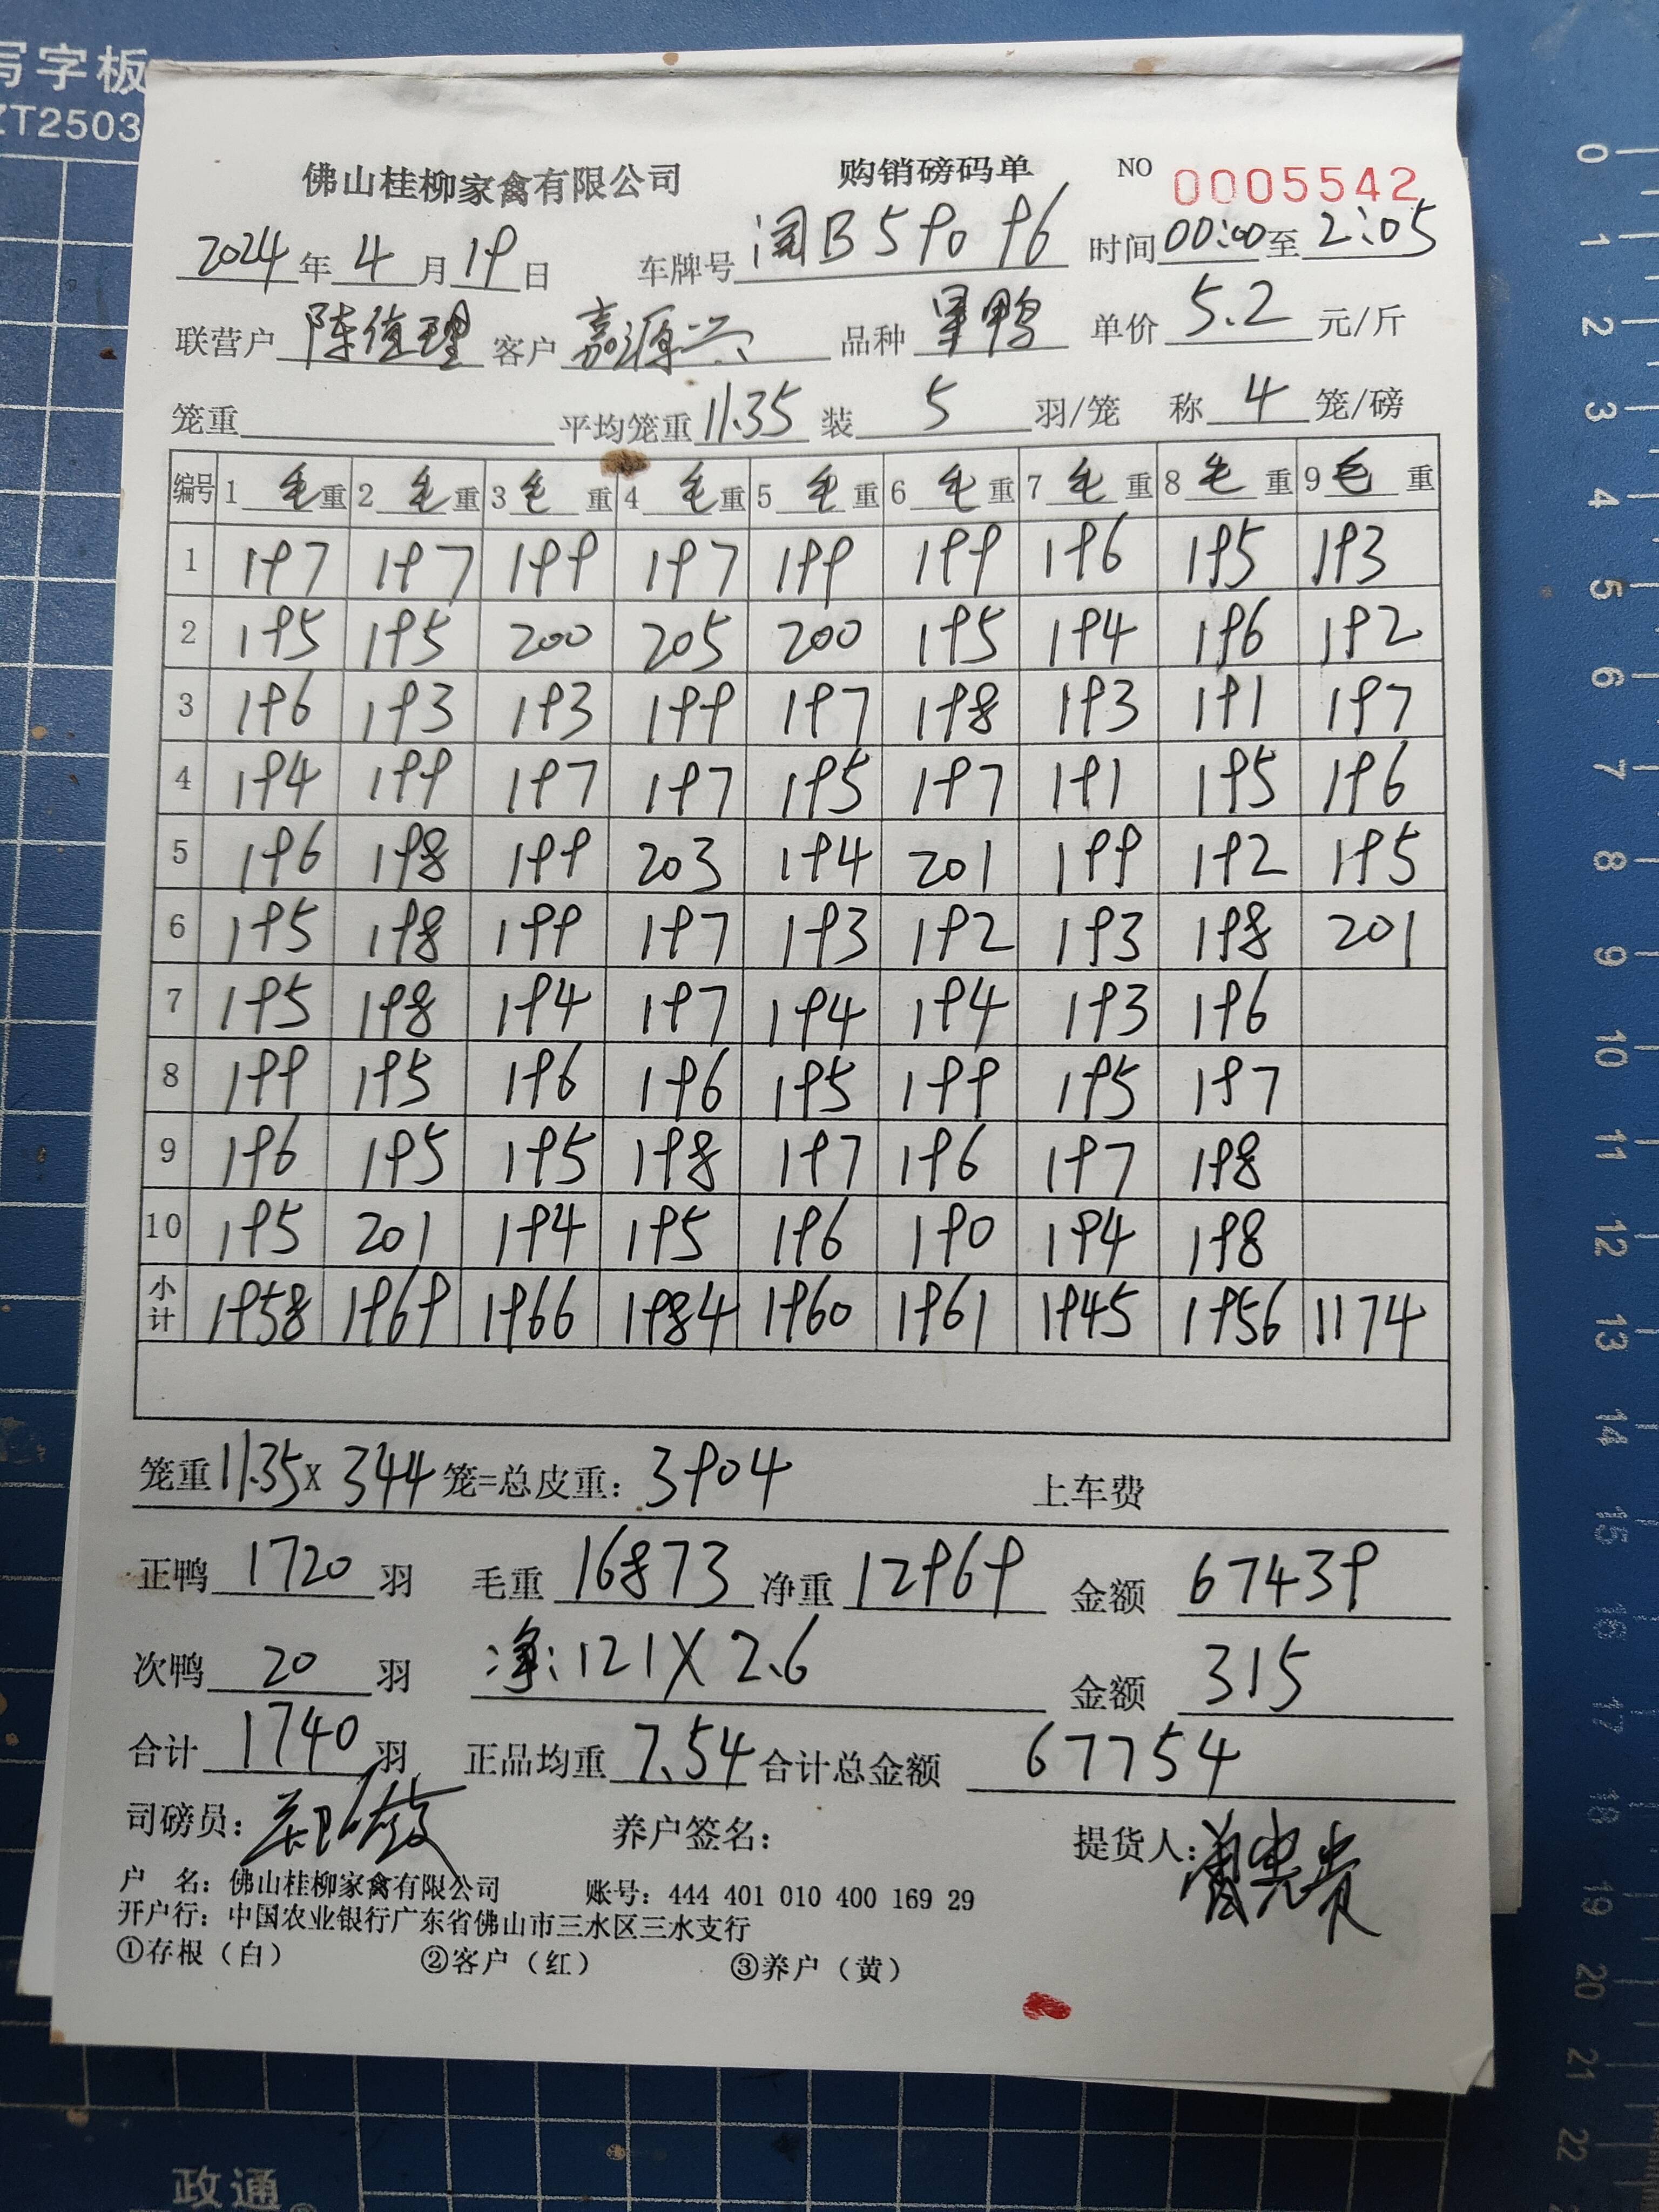 写字板
ZT2503
佛山桂柳家禽有限公司 购销磅码单 NO 0005542
2024年4月19日 车牌号 闽B59096 时间00:00至2:05
联营户 陈 理 客户 嘉源兴 品种 鸭 单价 5.2 元/斤
笼重 平均笼重 11.35 装 5 羽/笼 称 4 笼/磅
编号 1 毛重 2 毛重 3 毛重 4 毛重 5 毛重 6 毛重 7 毛重 8 毛重 9 毛重
1 197 197 199 197 199 199 196 195 193
2 195 195 200 205 200 195 194 196 192
3 196 193 193 199 197 198 193 191 197
4 194 199 197 197 195 197 191 195 196
5 196 198 199 203 194 201 199 192 195
6 195 198 199 197 193 192 193 198 201
7 195 198 194 197 194 194 193 196
8 199 195 196 196 195 199 195 197
9 196 195 195 198 197 196 197 198
10 195 201 194 195 196 190 194 198
小计 1958 1969 1966 1984 1960 1961 1945 1956 1174
笼重11.35x344笼=总皮重：3904 上车费
正鸭 1720 羽 毛重 16873 净重 12969 金额 67439
次鸭 20 羽 净：121X2.6 金额 315
合计 1740 羽 正品均重 7.54 合计总金额 67754
司磅员： 养户签名： 提货人：
户 名：佛山桂柳家禽有限公司 账号：444 401 010 400 169 29
开户行：中国农业银行广东省佛山市三水区三水支行
①存根（白） ②客户（红） ③养户（黄）
政通®
0
1
2
3
4
5
6
7
8
9
10
11
12
13
14
15
16
17
18
19
20
21
22